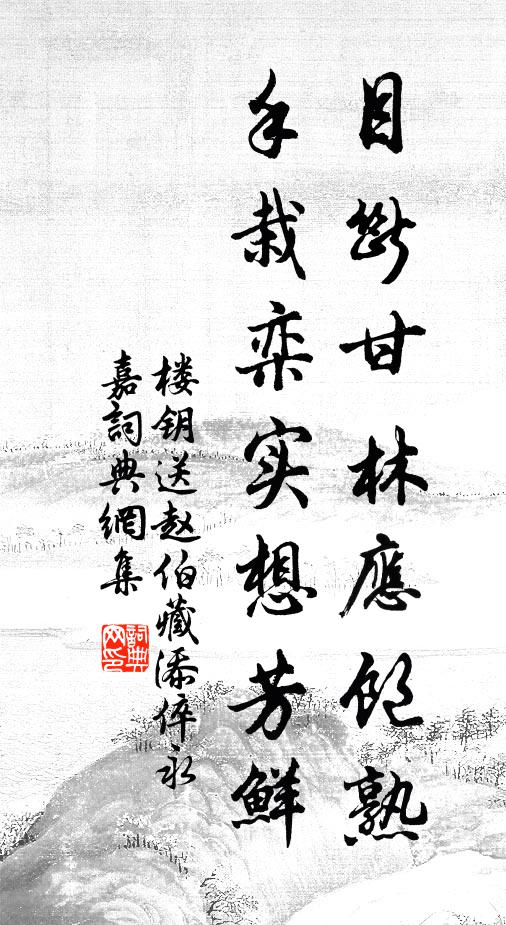 目断甘林应饱熟
手栽栾实想芳鲜
楼钥送赵伯藏添倅永
嘉詞典網集
詞典
网印